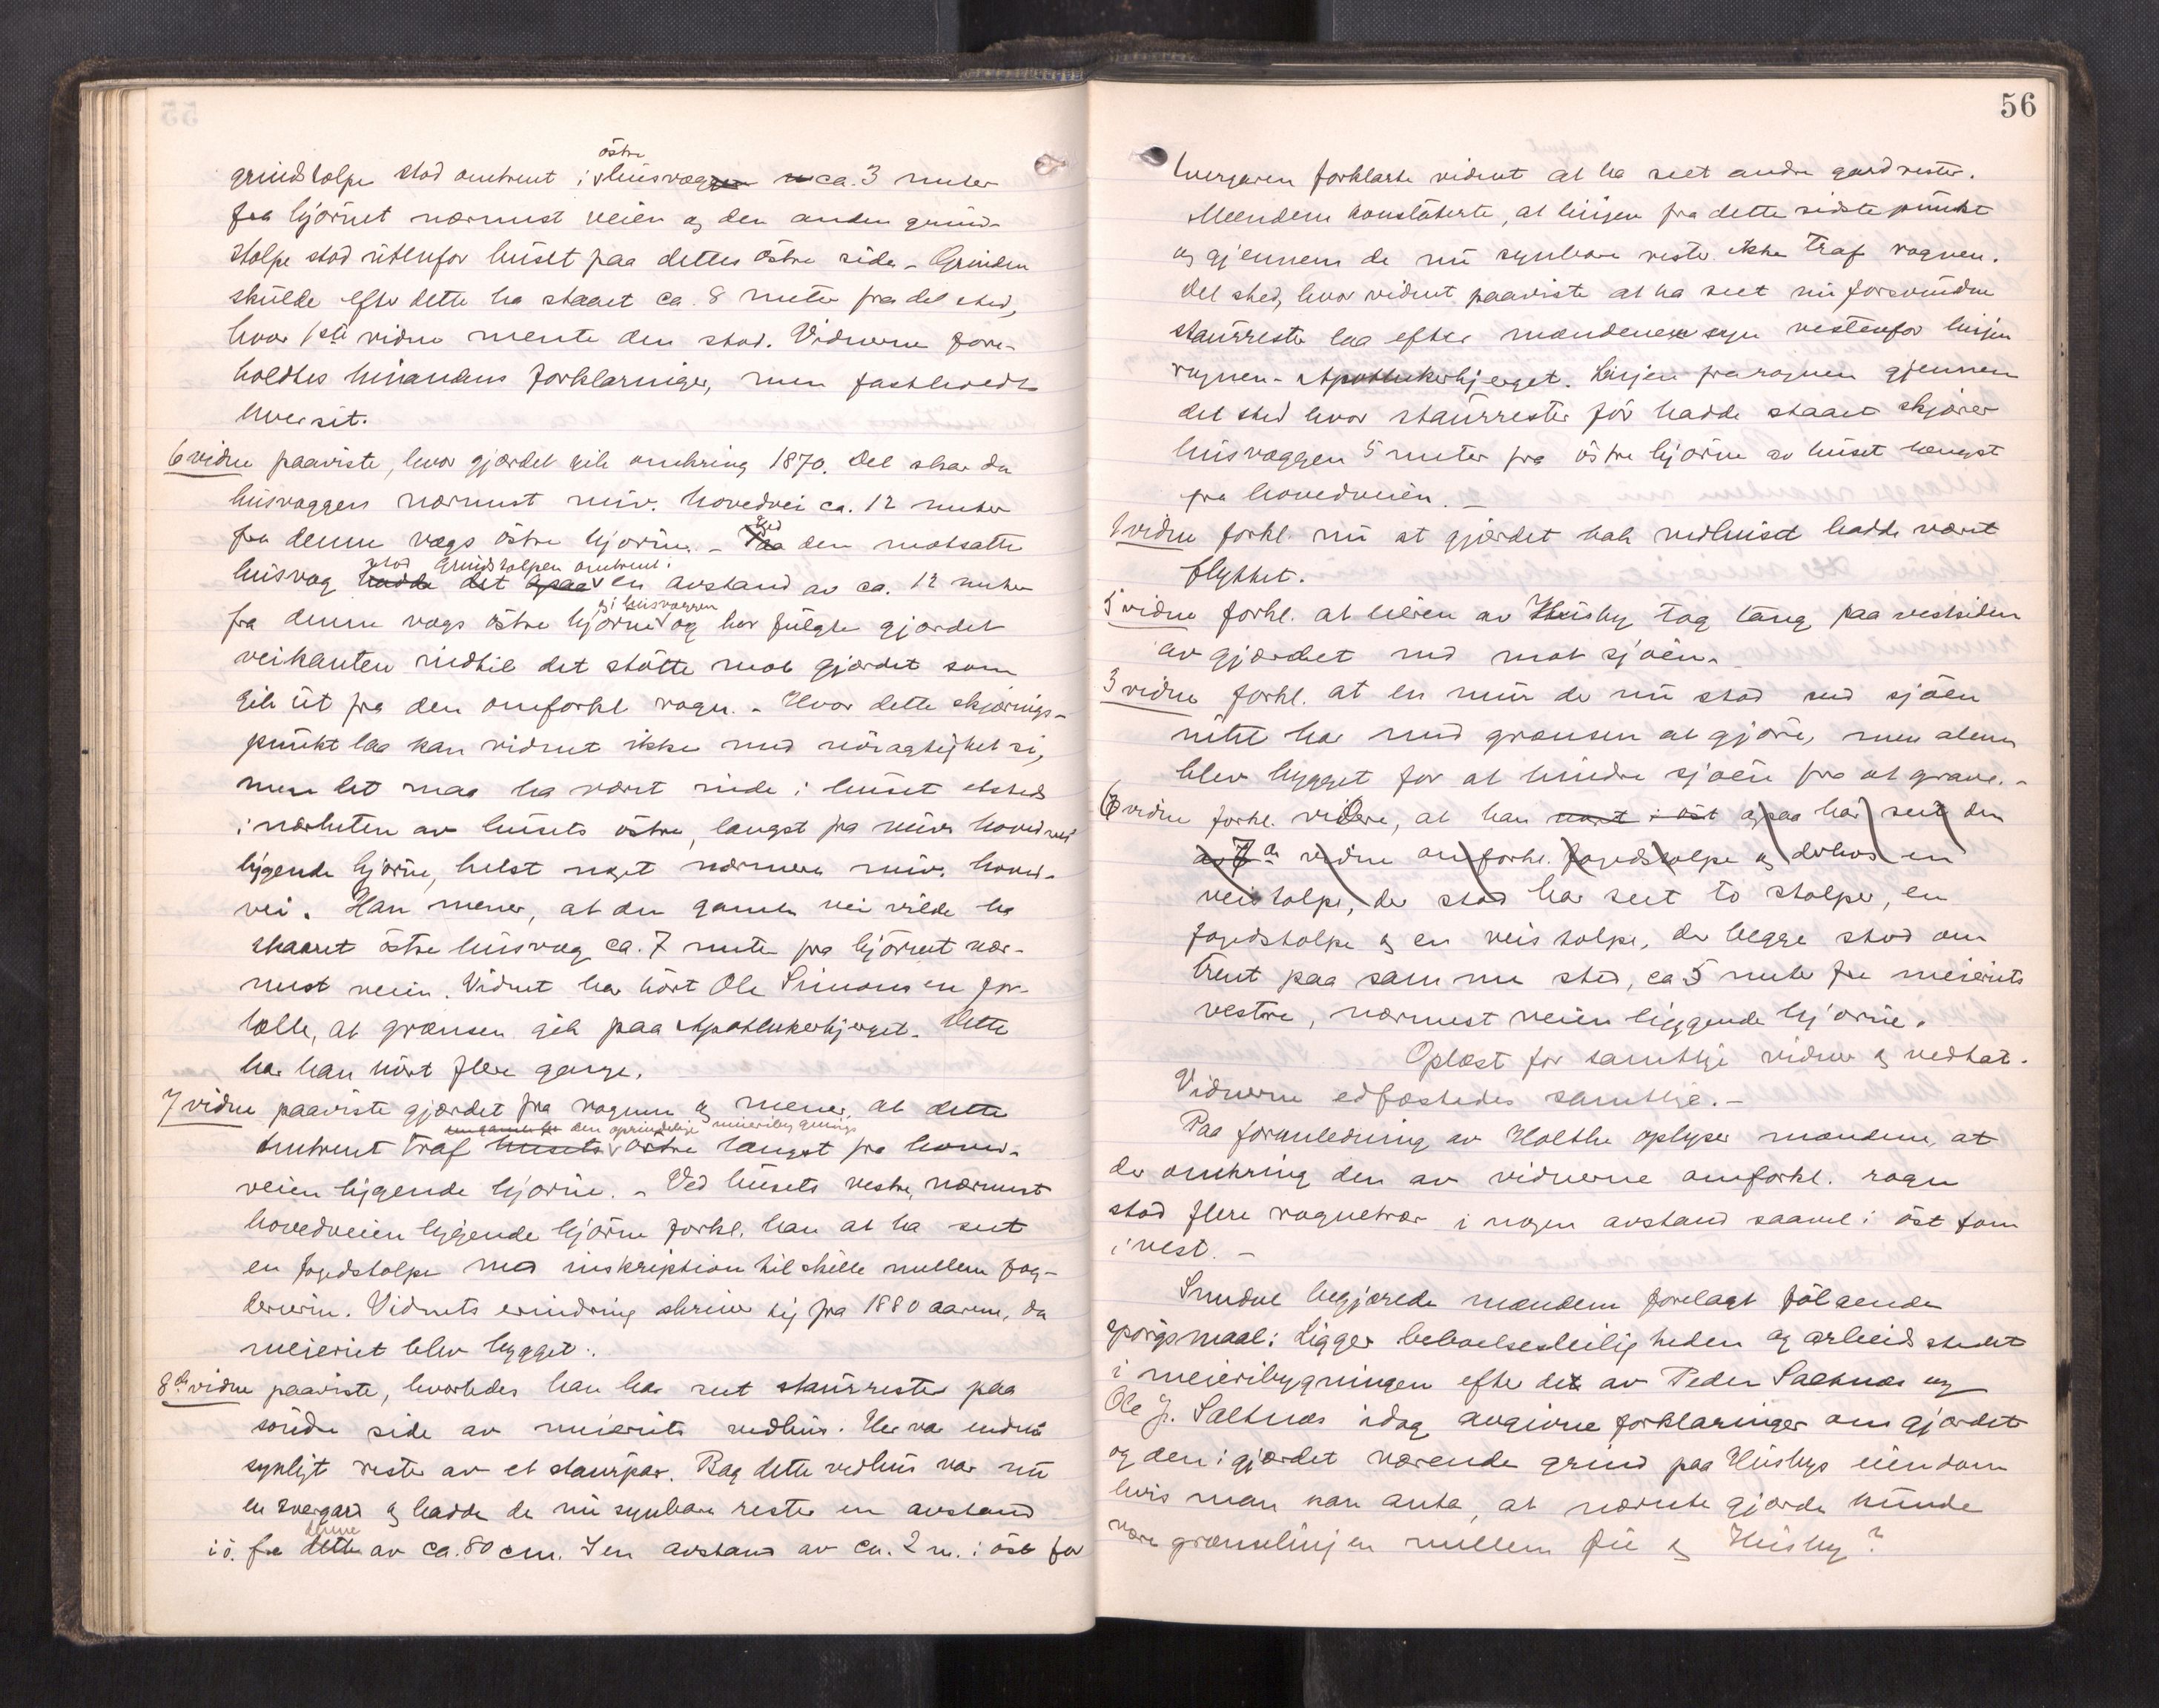 grindstolpe stod omtrent i østre husvæg ca. 3 meter
fra hjørnet nærmest veien og den anden grind-
stolpe stod utenfor huset paa dettes østre side. - Grinden
skulde efter dette ha staaet ca. 8 meter fra det sted,
hvor 1ste vidne mente den stod. Vidnerne fore-
holdtes hinandens forklaringer, men fastholdt
hver sit.
6 vidne paaviste, hvor gjærdet gik omkring 1870. Det skar da
husvæggen nærmest nuv. hovedvei ca. 12 meter
fra denne vægs østre hjørne. - Ved den motsatte
husvæg stod grindstolpen omtrent i en avstand av ca. 12 meter
fra denne vægs østre hjørne i husvæggen og her fulgte gjærdet
veikanten indtil det støtte mot gjærdet som
gik ut fra den omforkl. rogn. - Hvor dette skjærings-
punkt laa kan vidnet ikke med nøiagtighet si,
men det maa ha været inde i huset etsteds
i nærheten av husets østre, længst fra nuv. hovedvei
liggende hjørne, helst noget nærmere nuv. hoved-
vei. Han mener, at den gamle vei vilde ha
skaaret østre husvæg ca. 7 meter fra hjørnet nær-
mest veien. Vidnet har hørt Ole Simonsen for-
tælle, at grænsen gik paa Apothekerbjerget. Dette
har han hørt flere gange.
7 vidne paaviste gjærdet fra rognen og mener, at dette
den oprindelige meieribygnings
omtrent traf husets østre længst fra hoved-
veien liggende hjørne. - Ved husets vestre, nærmest
hovedveien liggende hjørne forkl. han at ha seet
en fogedstolpe med inskription til skille mellem fog-
derierne. Vidnets erindring skriver sig fra 1880 aarene, da
meieriet blev bygget.
8de vidne paaviste, hvorledes han har seet staurrester paa
søndre side av meieriets vedhus. Her var endnu
synligt rester av et staurpar. Bag dette vedhus var nu
en tvergard og hadde de nu synbare rester en avstand
i ø. fra denne av ca. 80 cm. I en avstand av ca. 2 m. i øst for
56
tvergaren forklarte vidnet at ha seet andre gardrester.
Mændene konstaterte, at linjen fra dette sidste punkt
og gjennem de nu synbare rester ikke traf rognen.
Det sted, hvor vidnet paaviste at ha seet nu forsvundne
staurrester laa efter mændenes syn vestenfor linjen
rognen - Apothekerbjerget. Linjen fra rognen gjennem
det sted hvor staurrester før hadde staaet skjærer
husvæggen 5 meter fra østre hjørne av huset længst
fra hovedveien. -
1 vidne forkl. nu at gjærdet bak vedhuset hadde været
flyttet.
5 vidne forkl. at eieren av Husby tog tang paa vestsiden
av gjærdet ned mot sjøen. -
3 vidne forkl. at en mur der nu stod ved sjøen
intet har med grænsen at gjøre, men alene
blev bygget for at hindre sjøen fra at grave. -
6 vidne forkl. videre, at han været i øst ogsaa har seet den
av 7de vidne omforkl. fogedstolpe og derhos en
veistolpe, der stod har seet to stolper, en
fogedstolpe og en veistolpe, der begge stod om
trent paa samme sted, ca 5 meter fra meieriets
vestre, nærmest veien liggende hjørne.
Oplæst for samtlige vidner og vedtat.
Vidnerne edfæstedes samtlige. -
Paa foranledning av Holthe oplyser mændene, at
der omkring den av vidnerne omforkl. rogn
stod flere rognetrær i nogen avstand saavel i øst som
i vest. -
begjærede mændene forelagt følgende
spørgsmaal: Ligger beboelsesleiligheden og arbeidsstedet
i meieribygningen efter det av Peder Saltnes og
Ole J. Saltnes idag avgivne forklaringer om gjærdet
og den i gjærdet værende grind paa Husbys eiendom
hvis man kan anta, at nævnte gjærde kunde
være grænselinjen mellem Fü og Husby?